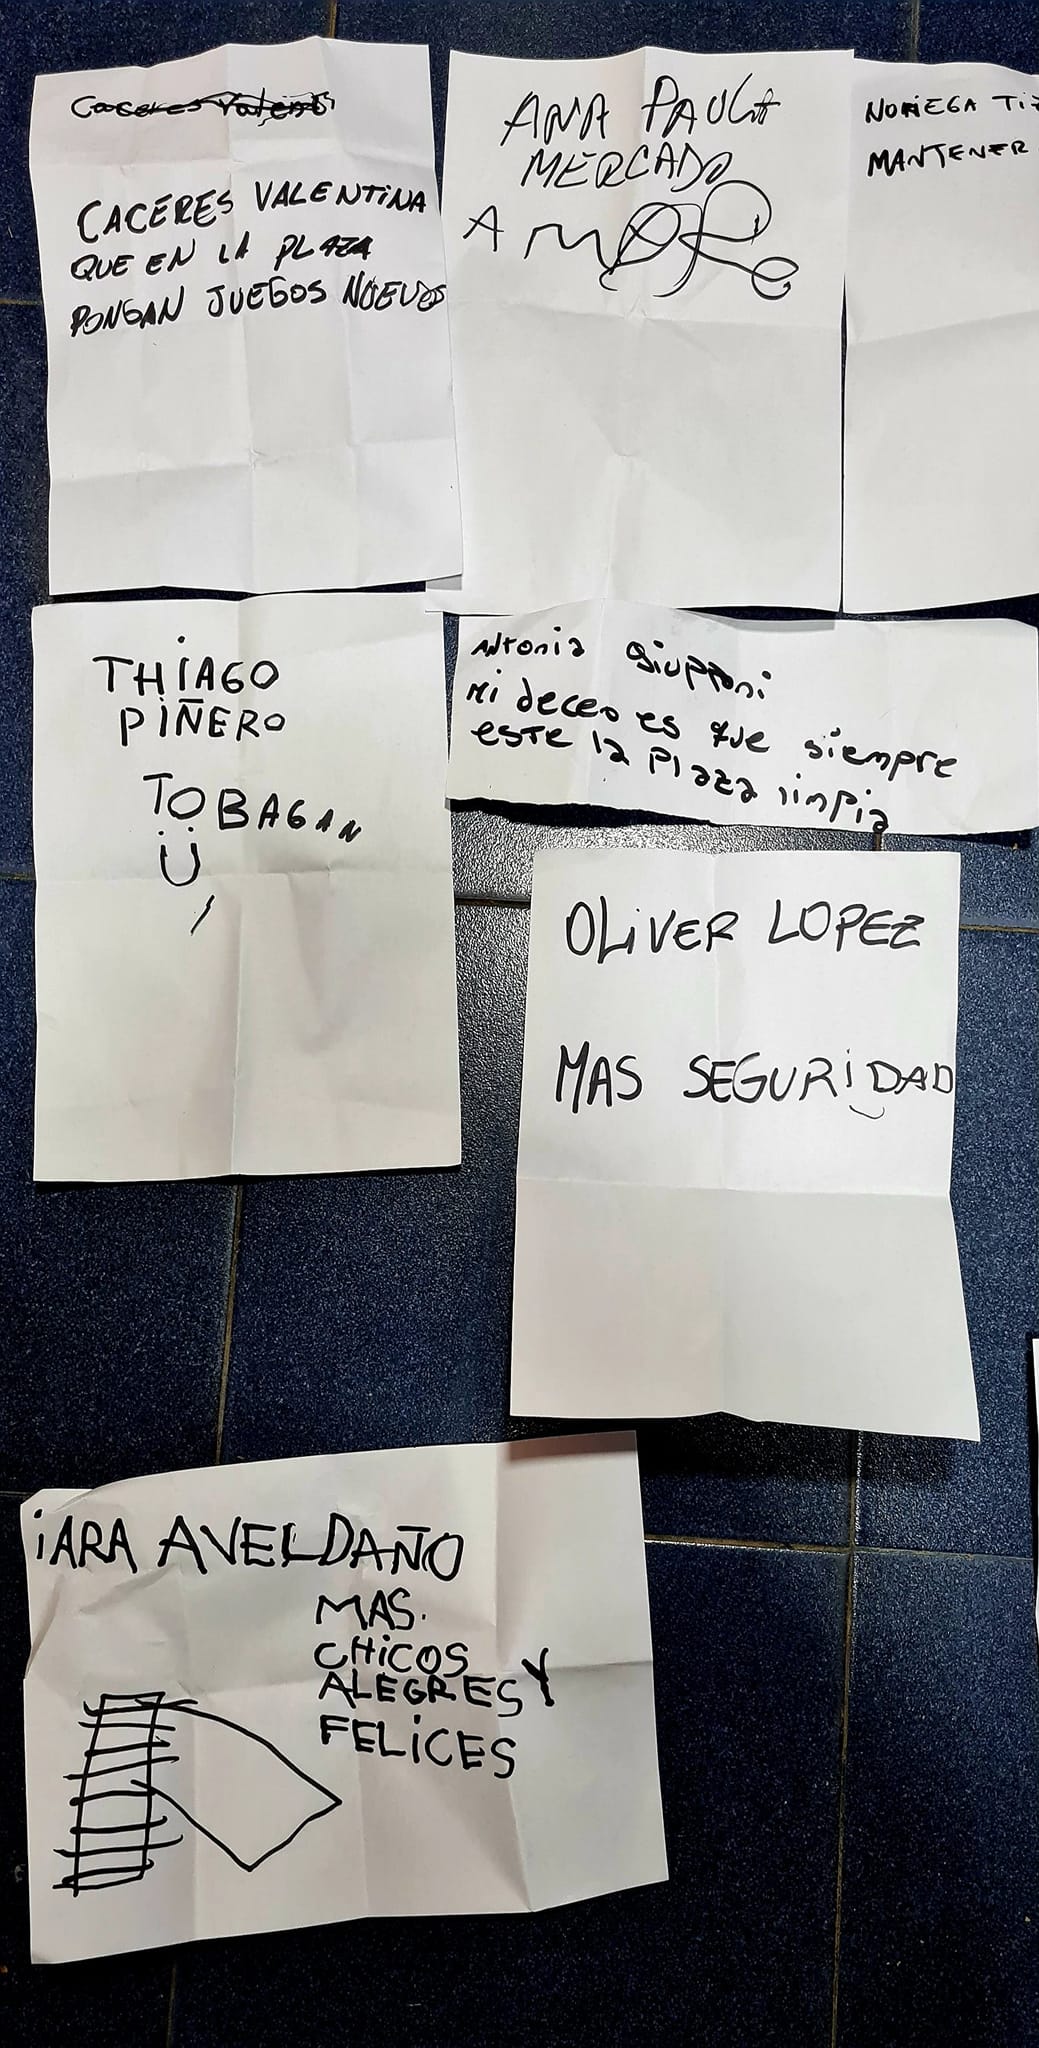 CACERES VALENTINA
QUE EN LA PLAZA
PONGAN JUEGOS NUEVOS
ANA PAULA
MERCADO
AMOR
NORIEGA
MANTENER
THIAGO
PIÑERO
TOBAGAN
Antonia Giupponi
Mi deceo es que siempre
este la plaza limpia
OLIVER LOPEZ
MAS SEGURIDAD
iARA AVELDAÑO
MAS.
CHICOS
ALEGRES Y
FELICES